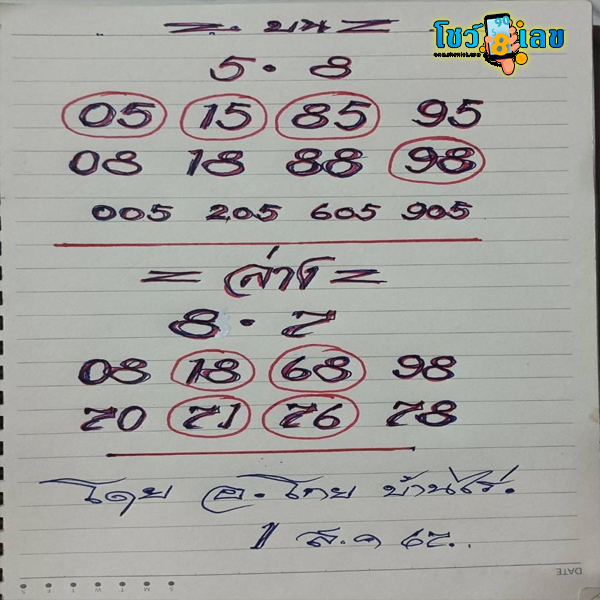 โชว์เลข
= บน =
5 · 8
05 15 85 95
08 18 88 98
005 205 605 905
= ล่าง =
8 · 7
08 18 68 98
70 71 76 78
โดย อ. โทย บ้านไร่.
1 ส.ค 65..
DATE